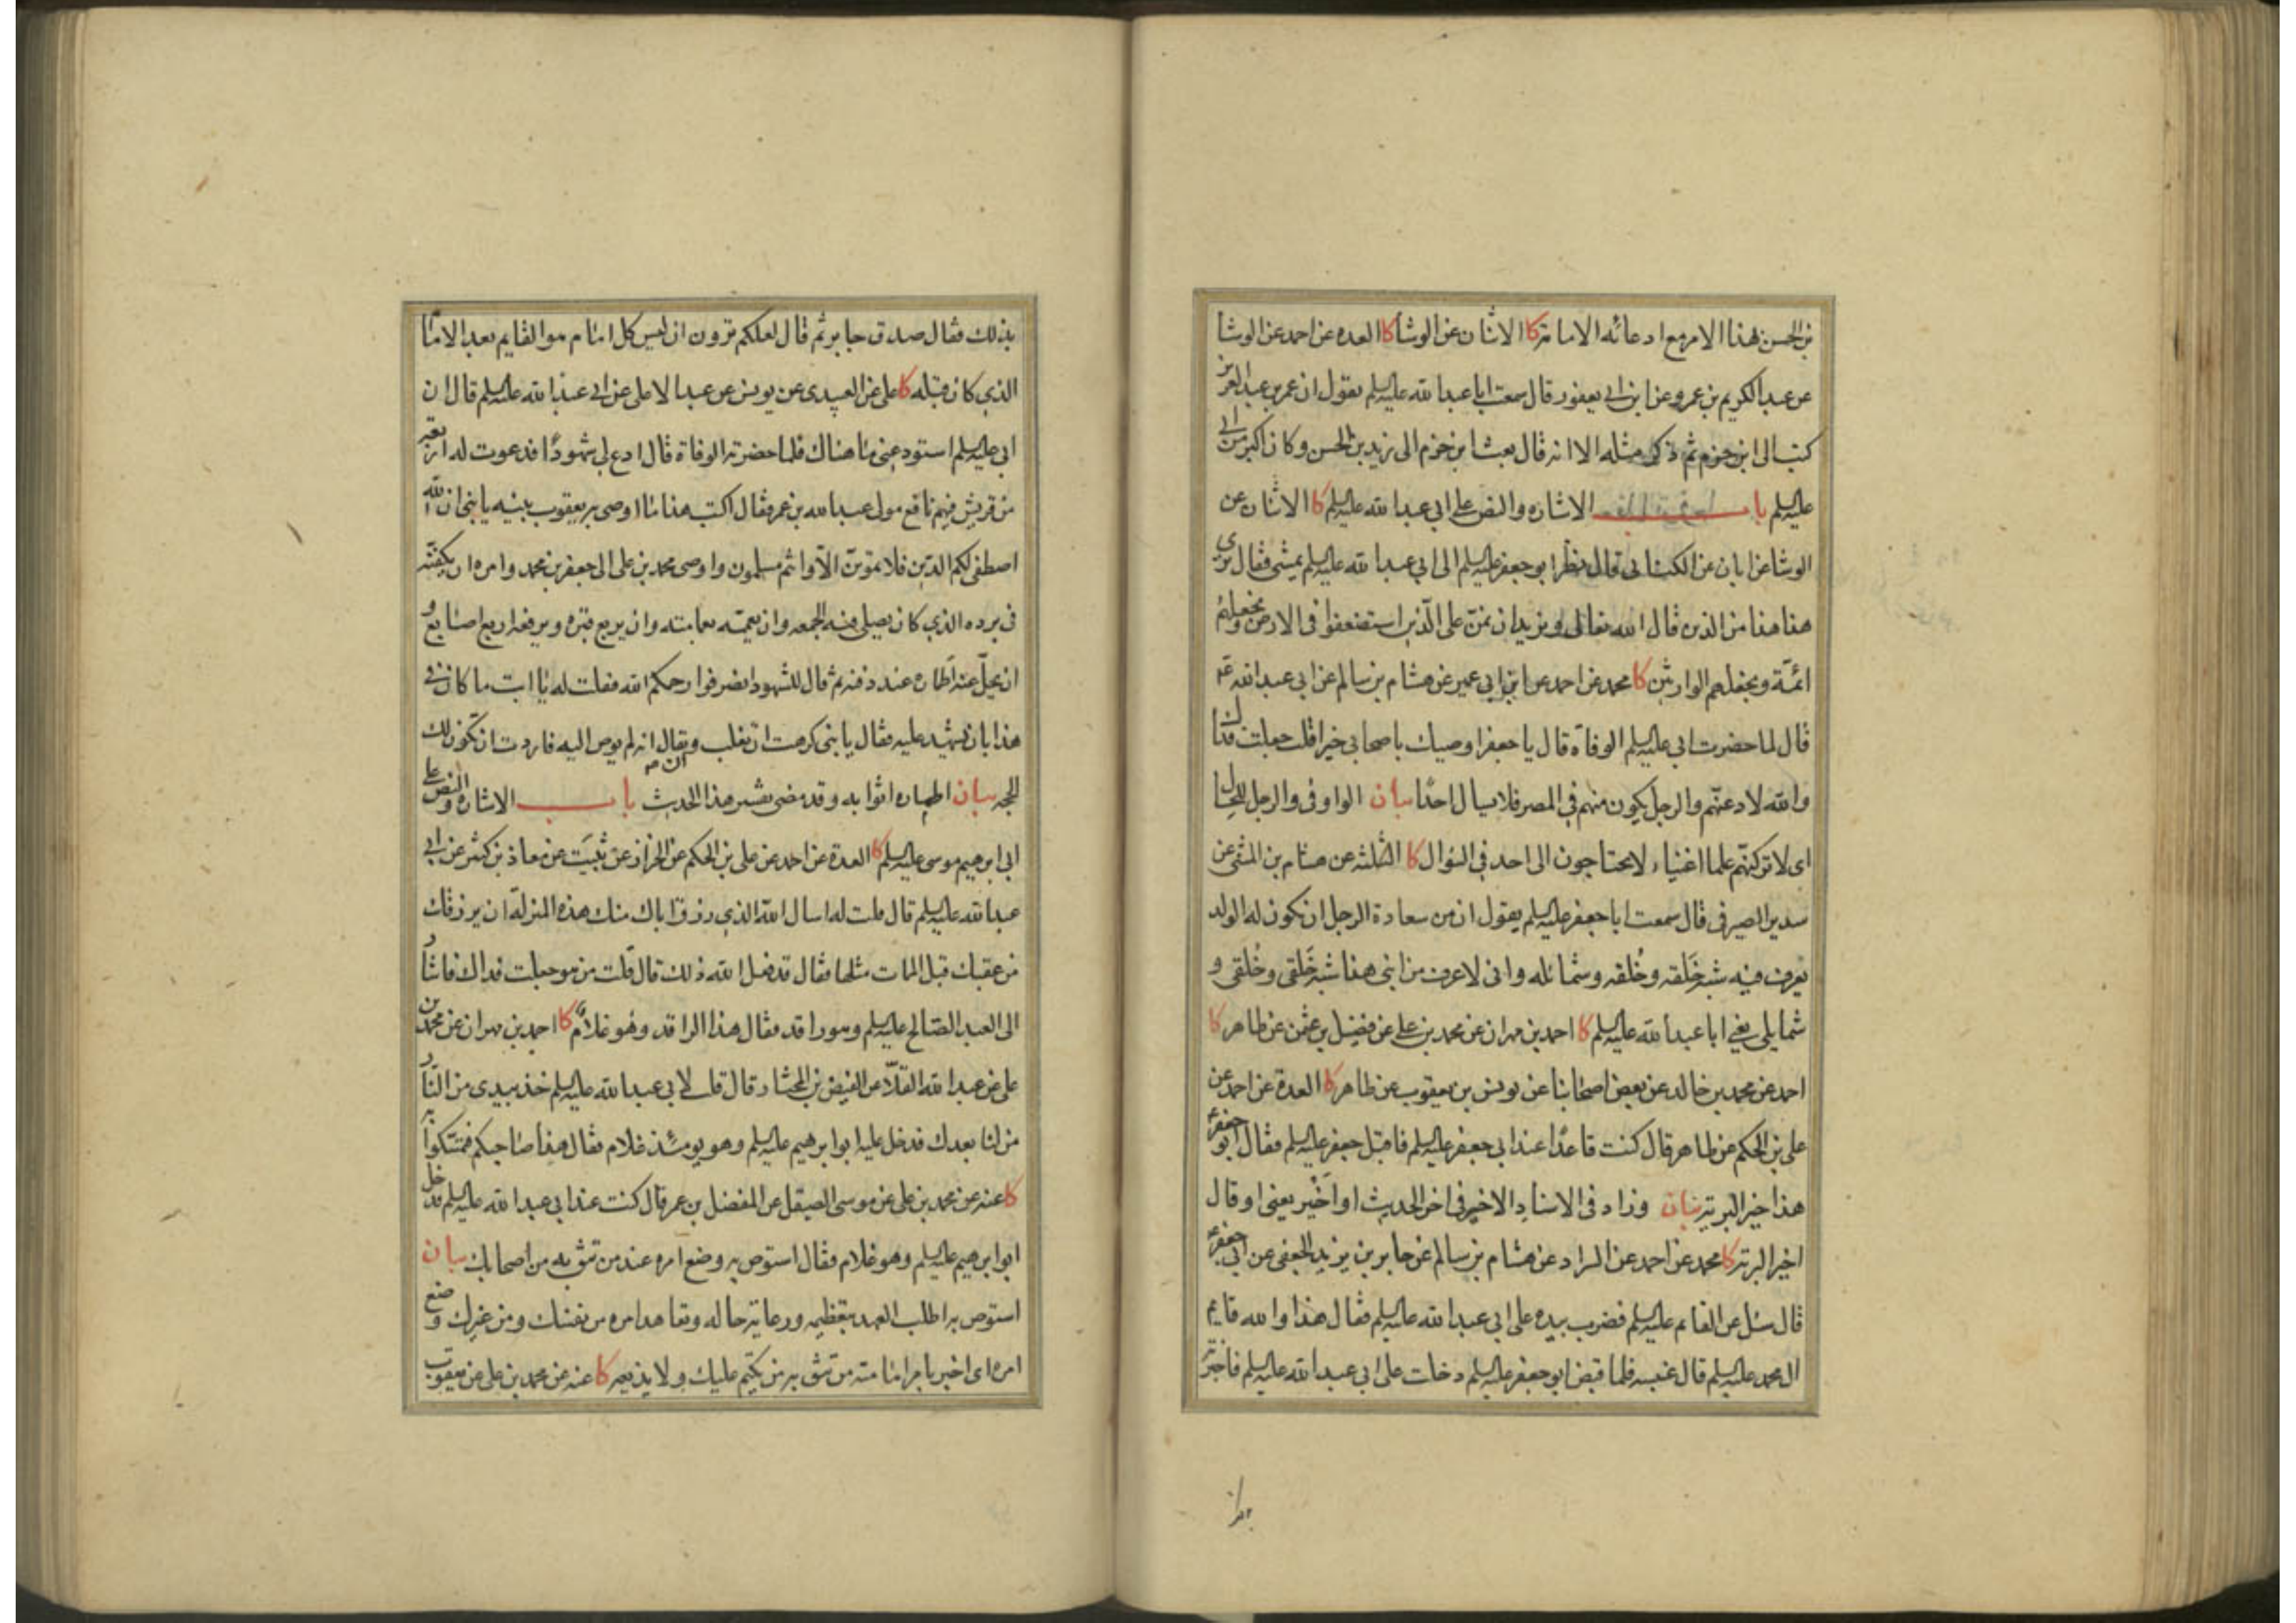 بن الحسن هذا الامر مع ادعائه الامامة كا الاثنان عن الوشا كا العده عن احمد عن الوشا
عن عبد الكريم بن عمرو عن ابن ابي يعفور قال سمعت ابا عبد الله عليه السلم يقول ان عمر بن عبد العزيز
كتب الى ابن حزم ثم ذكر مثله الا انه قال بعث ابن حزم الى زيد بن الحسن وكان اكبر من ابي
عليه السلم باب الاشاره والنص على ابي عبد الله عليه السلم كا الاثنان عن
الوشا عن ابان عن الكنانى قال نظر ابو جعفر عليه السلم الى ابي عبد الله عليه السلم يمشى فقال ترى
هذا هذا من الذين قال الله تعالى ونريد ان نمنّ على الّذين استضعفوا فى الارض ونجعلهم
ائمّة ونجعلهم الوارثين كا محمد عن احمد عن ابن ابي عمير عن هشام بن سالم عن ابي عبد الله ع
قال لما حضرت ابي عليه السلم الوفاة قال يا جعفر اوصيك باصحابي خيرا قلت جعلت فداك
والله لادعنّهم والرجل يكون منهم في المصر فلا يسال احدًا بيان الواو فى والرجل للحال
اى لاتركنهّم علما اغنياء لا يحتاجون الى احد فى السؤال كا الثلثه عن هشام بن المثنى عن
سدير الصيرفى قال سمعت ابا جعفر عليه السلم يقول ان من سعادة الرجل ان يكون له الولد
يعرف فيه شبه خَلقه وخُلقه وشمائله وانى لاعرف من ابنى هذا شبه خَلقى وخُلقى و
شمايلى يعني ابا عبد الله عليه السلم كا احمد بن مهران عن محمد بن على عن فضيل بن عثمن عن طاهر كا
احمد عن محمد بن خالد عن بعض اصحابنا عن يونس بن يعقوب عن طاهر كا العدة عن احمد عن
على بن الحكم عن طاهر قال كنت قاعدًا عند ابي جعفر عليه السلم فاقبل جعفر عليه السلم فقال ابو جعفر ع
هذا خير البريّة بيان وزاد فى الاسناد الاخير فى اخر الحديث او اَخْير يعنى او قال
اخير البرية كا محمد عن احمد عن السراد عن هشام بن سالم عن جابر بن يزيد الجعفى عن ابي جعفر ع
قال سئل عن القائم عليه السلم فضرب بيده على ابي عبد الله عليه السلم فقال هذا والله قايم
ال محمد عليه السلم قال عنبسه فلما قبض ابو جعفر عليه السلم دخلت على ابي عبد الله عليه السلم فاخبرته
بذلك فقال صدق جابر ثم قال لعلكم ترون ان ليس كل امام هو القايم بعد الامام
الذي كان قبله كا على عن العبيدى عن يونس عن عبد الاعلى عن ابي عبد الله عليه السلم قال ان
ابي عليه السلم استودعنى ما هناك فلما حضرته الوفاة قال ادع لي شهودًا فدعوت له اربعة
من قريش فيهم نافع مولى عبد الله بن عمر فقال اكتب هذا ما اوصى به يعقوب بنيه يا بنى ان الله
اصطفى لكم الدين فلا تموتنّ الّا وانتم مسلمون واوصى محمد بن على الى جعفر بن محمد وامره ان يكفنّه
فى برده الذي كان يصلى فيه الجمعه وان يعممّه بعمامته وان يربع قبره ويرفعه اربع اصابع و
ان يحلّ عنه اَطماره عند دفنه ثم قال للشهود انصرفوا رحمكم الله فقلت له يا ابت ما كان في
هذا بان تشهد عليه فقال يا بنى كرهت ان تغلب وان يقال انه لم يوص اليه فاردت ان تكون لك
الحجه بيان اطماره اثوابه وقد مضى تفسير هذا الحديث باب الاشاره والنص على
ابي ابرهيم موسى عليه السلم كا العدة عن احمد عن على بن الحكم عن الخراز عن ثبيت عن معاذ بن كثير عن ابي
عبد الله عليه السلم قال قلت له اسال الله الذي رزق اباك منك هذه المنزلة ان يرزقك
من عقبك قبل الممات مثلها فقال قد فعل الله ذلك قال قلت من هو جعلت فداك فاشار
الى العبد الصّالح عليه السلم وهو راقد فقال هذا الراقد وهُو غلامٌ كا احمد بن مهران عن محمد بن
على عن عبد الله القلّا عن الفيض بن المختار قال قلت لابي عبد الله عليه السلم خذ بيدى من النّار
من لنا بعدك فدخل عليه ابو ابرهيم عليه السلم وهو يومئذ غلام فقال هذا صاحبكم فتمسّكوا به
كا عنه عن محمد بن على عن موسى الصيقل عن المفضل بن عمر قال كنت عند ابي عبد الله عليه السلم فدخل
ابو ابرهيم عليه السلم وهو غلام فقال استوص به وضع امره عند من تثق به من اصحابك بيان
استوص به اطلب العهد بتعظيمه ورعاية حاله وتعاهد امره من نفسك ومن غيرك وضع
امره اى اخبر بامر امامته من تثق به من يكتم عليك ولا يذيعه كا عنه عن محمد بن على عن يعقوب